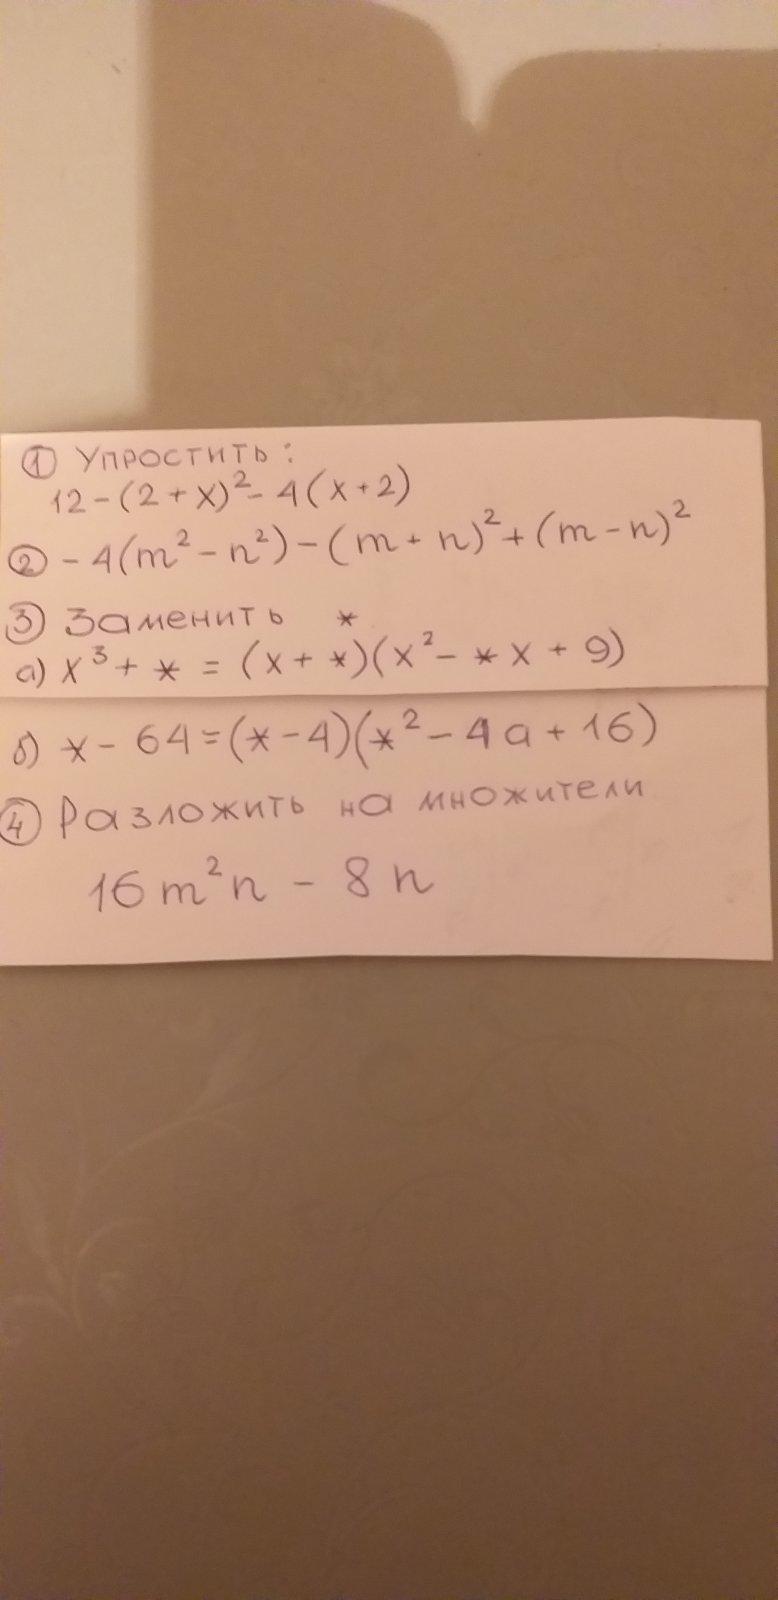 ① Упростить:
12-(2+x)²-4(x+2)
② -4(m²-n²)-(m+n)²+(m-n)²
③ Заменить *
а) x³+* = (x+*)(x²-*x+9)
б) *-64=(*-4)(*²-4a+16)
④ Разложить на множители
16m²n-8n